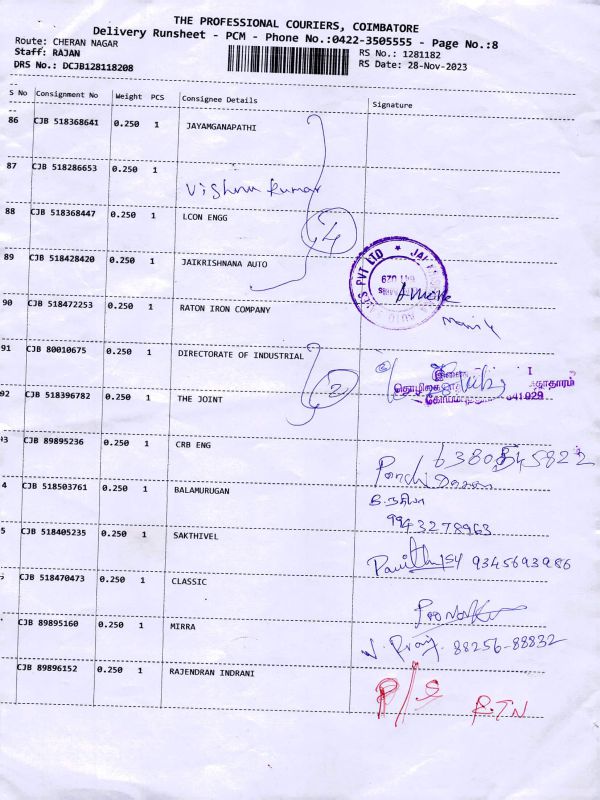 THE PROFESSIONAL COURIERS, COIMBATORE
Delivery Runsheet - PCM - Phone No.:0422-3505555 - Page No.:8
Route: CHERAN NAGAR RS No.: 1281182
Staff: RAJAN RS Date: 28-Nov-2023
DRS No.: DCJB128118208
S No Consignment No Weight PCS Consignee Details Signature
86 CJB 518368641 0.250 1 JAYAMGANAPATHI
87 CJB 518286653 0.250 1
Vishnu Kumar
88 CJB 518368447 0.250 1 LCON ENGG
4
89 CJB 518428420 0.250 1 JAIKRISHNANA AUTO
PVT LTD
641 029
90 CJB 518472253 0.250 1 RATON IRON COMPANY
91 CJB 80010675 0.250 1 DIRECTORATE OF INDUSTRIAL
2
641029
92 CJB 518396782 0.250 1 THE JOINT
93 CJB 89895236 0.250 1 CRB ENG
4 CJB 518503761 0.250 1 BALAMURUGAN
9943278963
5 CJB 518405235 0.250 1 SAKTHIVEL
9345693986
CJB 518470473 0.250 1 CLASSIC
CJB 89895160 0.250 1 MIRRA
88256-88832
CJB 89896152 0.250 1 RAJENDRAN INDRANI
P/S R.TN